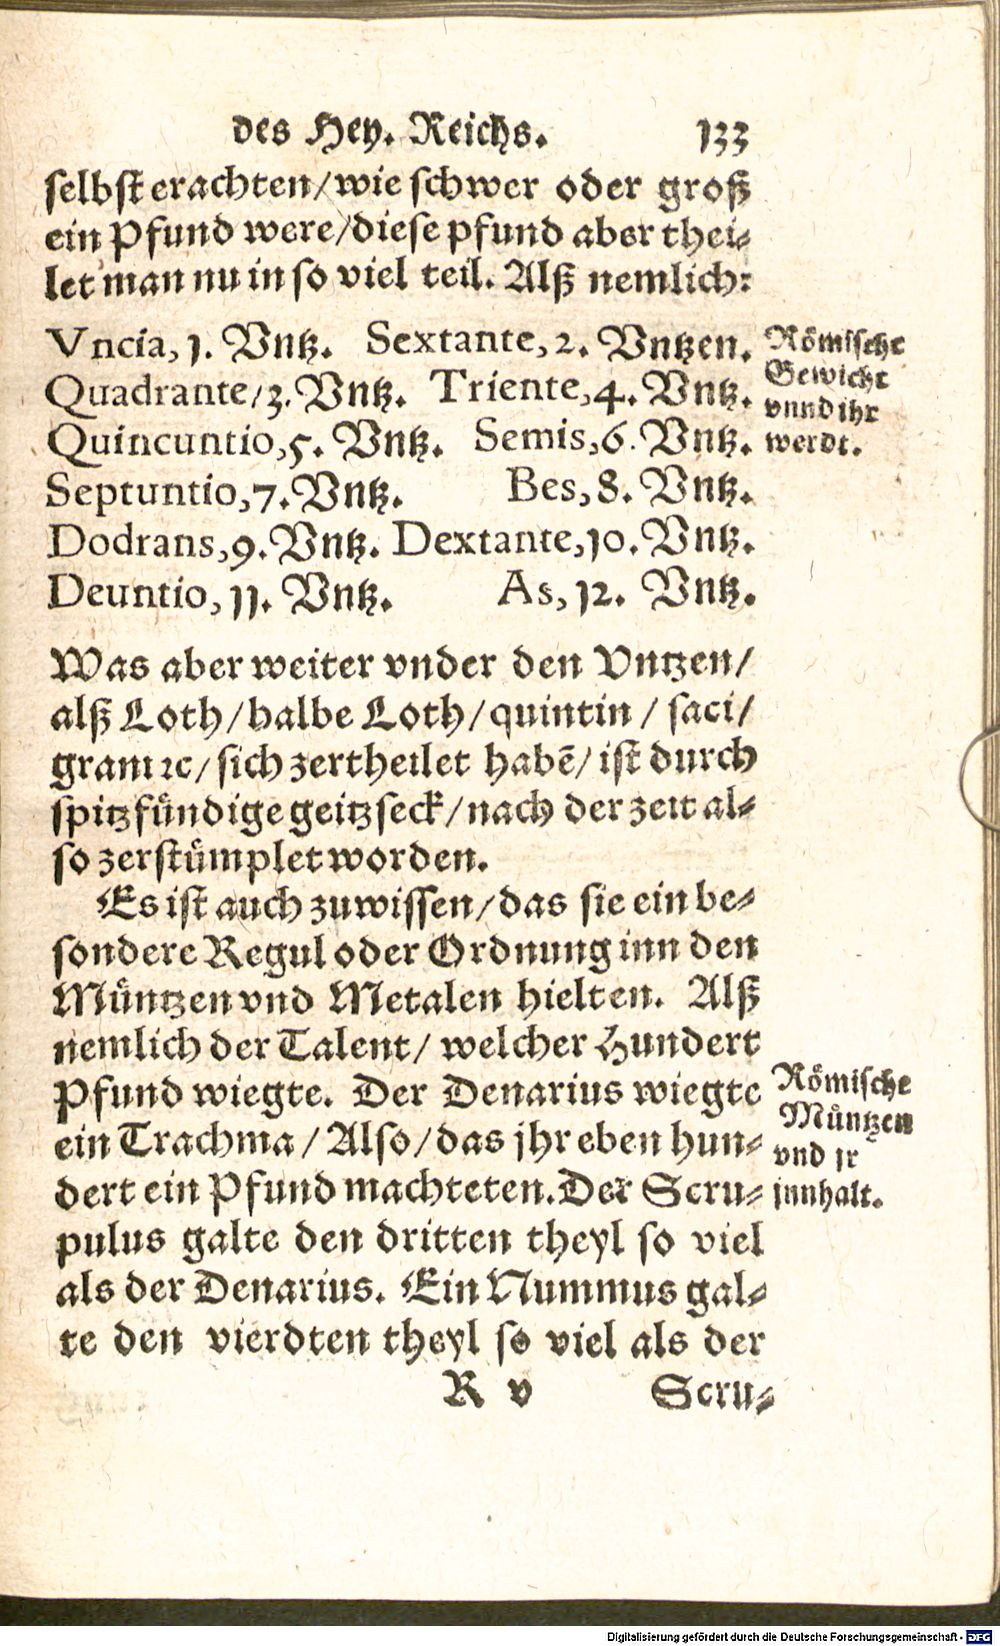 des Hey. Reichs. 133
selbst erachten/wie schwer oder groß
ein Pfund were/diese pfund aber thei-
let man nu in so viel teil. Alß nemlich:
Vncia, 1. Vntz. Sextante, 2. Vntzen.
Quadrante/3. Vntz. Triente, 4. Vntz.
Quincuntio, 5. Vntz. Semis, 6. Vntz.
Septuntio, 7. Vntz. Bes, 8. Vntz.
Dodrans, 9. Vntz. Dextante, 10. Vntz.
Deuntio, 11. Vntz. As, 12. Vntz.
Römische
Gewicht
vnnd ihr
werdt.
Was aber weiter vnder den Vntzen/
alß Loth/halbe Loth/quintin/ saci/
gram ꝛc/sich zertheilet habẽ/ist durch
spitzfündige geitzseck/nach der zeit al-
so zerstümplet worden.
Es ist auch zuwissen/das sie ein be-
sondere Regul oder Ordnung inn den
Müntzen vnd Metalen hielten. Alß
nemlich der Talent/ welcher Hundert
Pfund wiegte. Der Denarius wiegte
ein Trachma/Also/das jhr eben hun-
dert ein Pfund machteten. Der Scru-
pulus galte den dritten theyl so viel
als der Denarius. Ein Nummus gal-
te den vierdten theyl so viel als der
Römische
Müntzen
vnd jr
jnnhalt.
R v Scru-
Digitalisierung gefördert durch die Deutsche Forschungsgemeinschaft - DFG